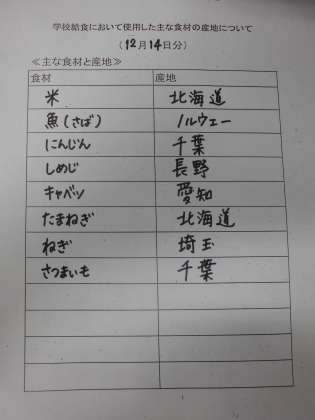 学校給食において使用した主な食材の産地について
(12月14日分)
≪主な食材と産地≫
食材 産地
米 北海道
魚(さば) ノルウェー
にんじん 千葉
しめじ 長野
キャベツ 愛知
たまねぎ 北海道
ねぎ 埼玉
さつまいも 千葉